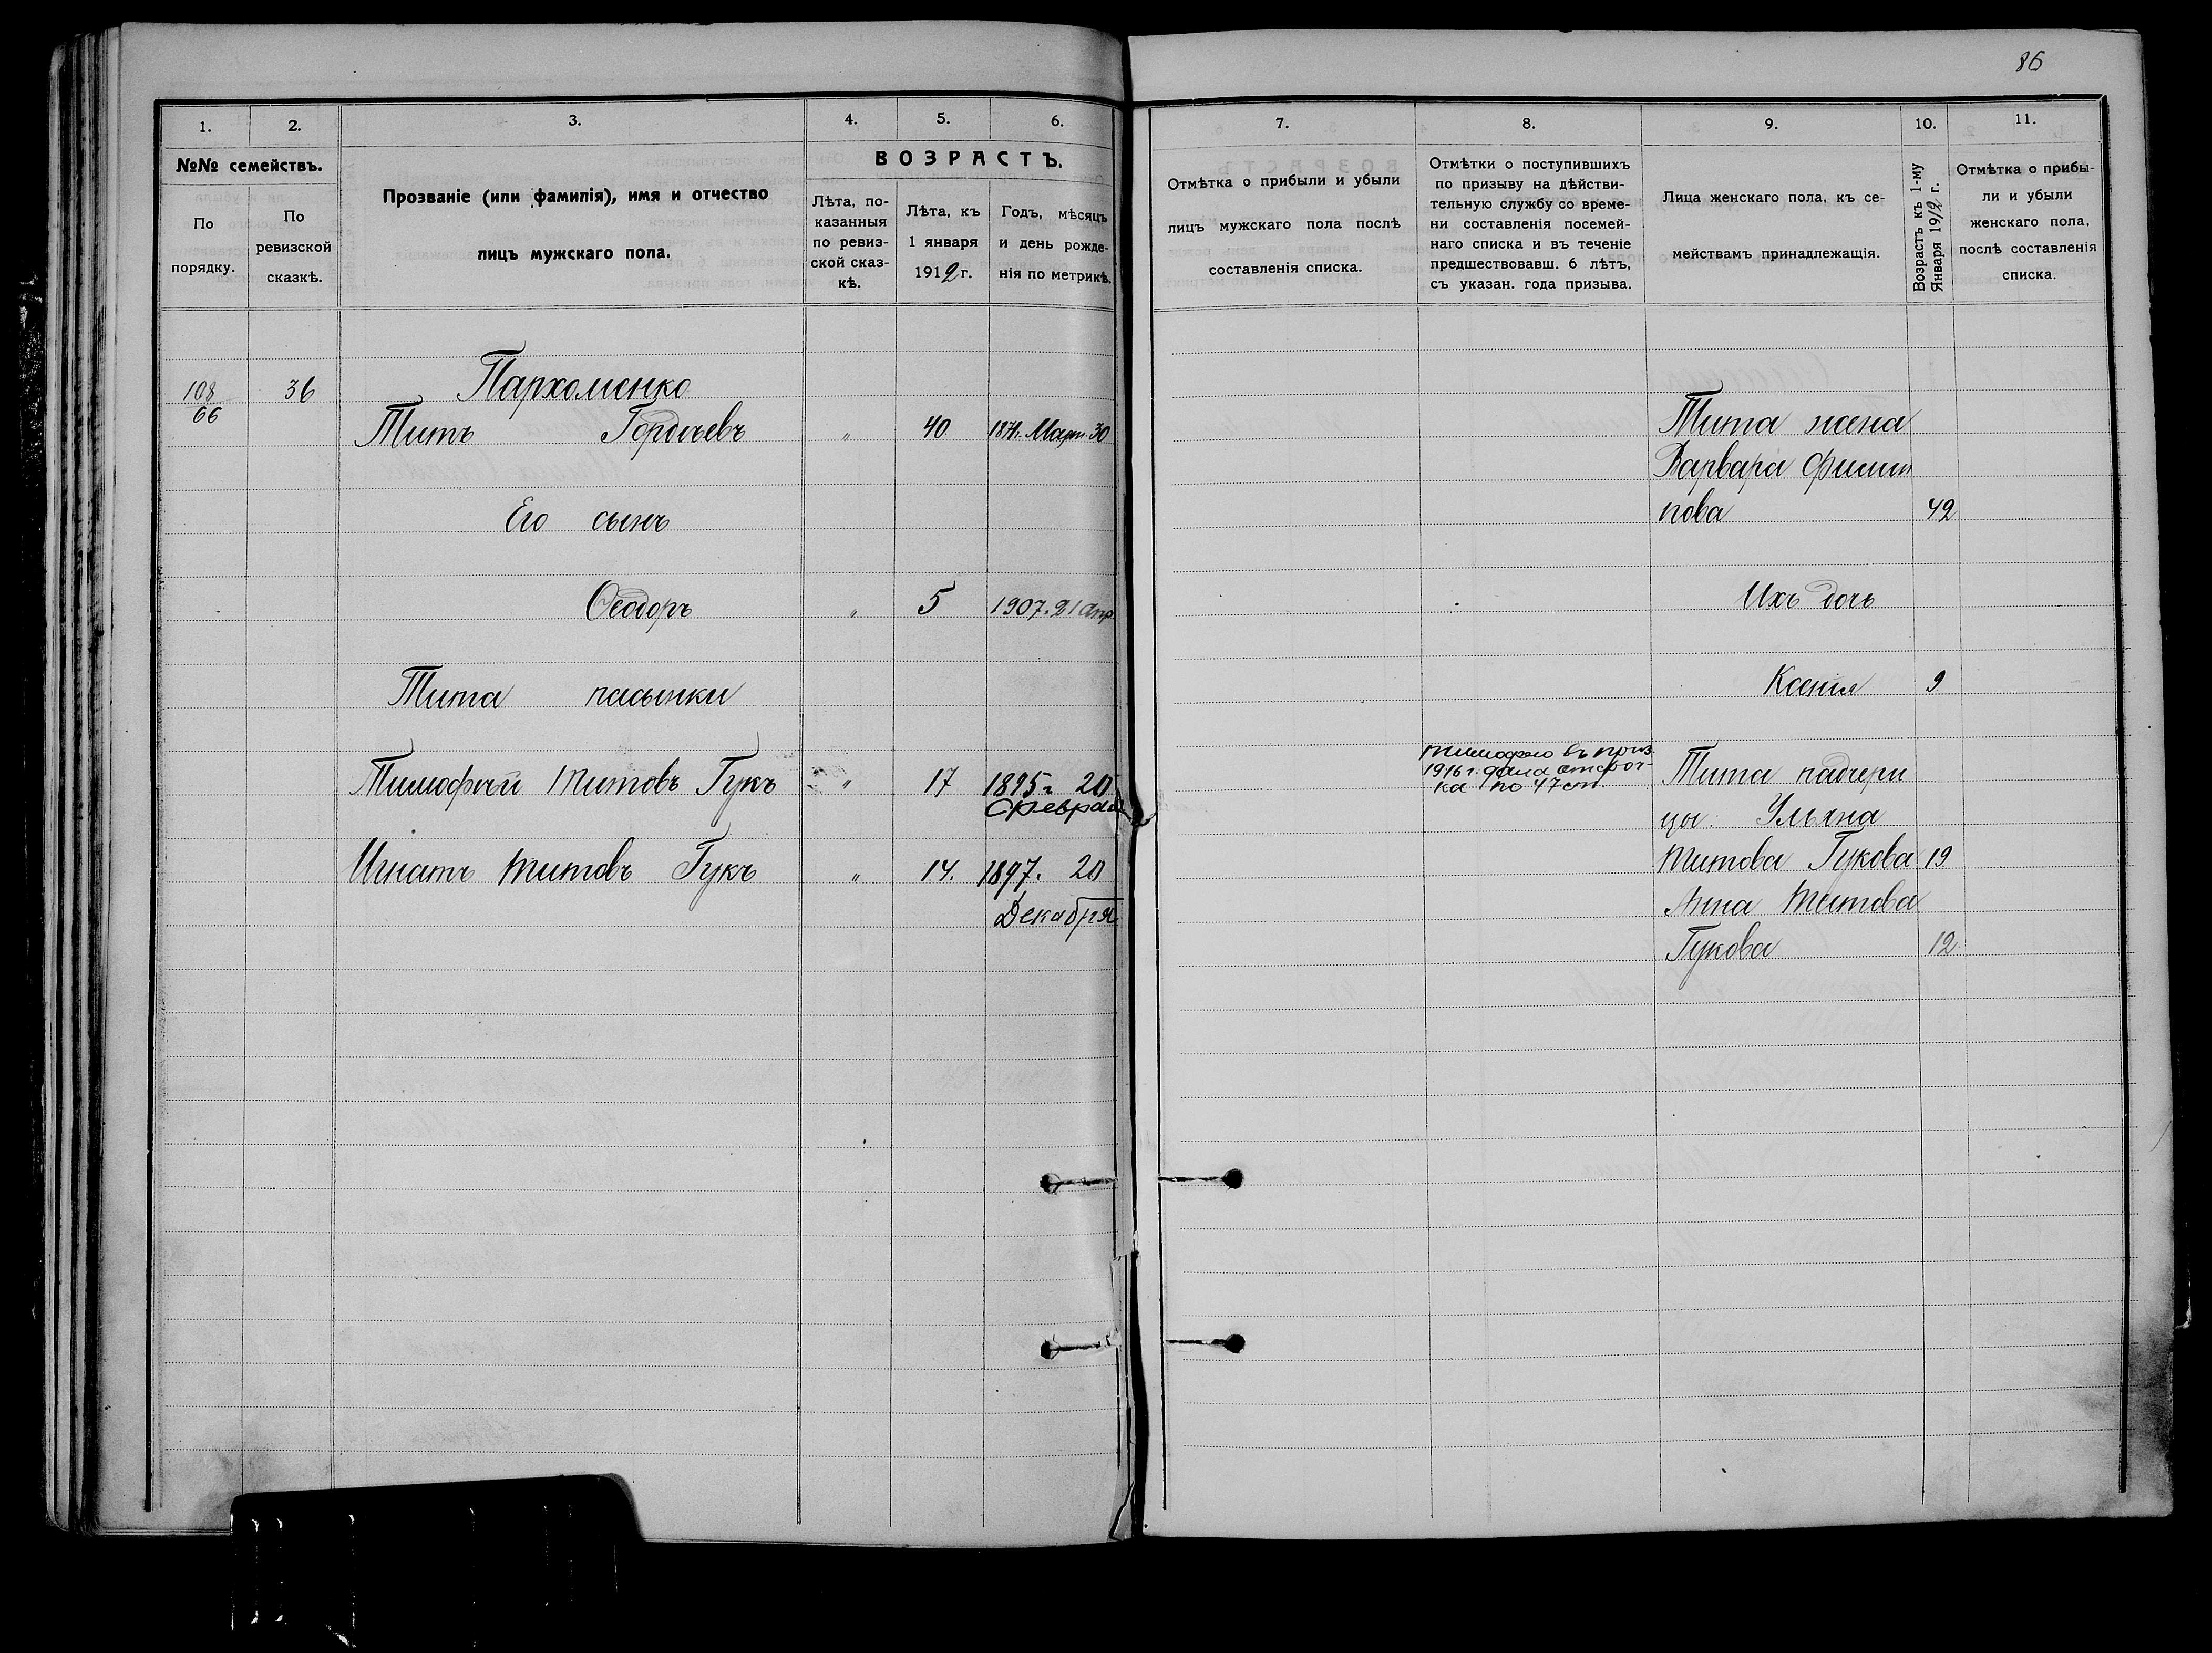 86
1. 2. 3. 4. 5. 6.
№№ семействъ.
По порядку.
По ревизской сказкѣ.
Прозваніе (или фамилія), имя и отчество
лицъ мужскаго пола.
ВОЗРАСТЪ.
Лѣта, по-
казанныя
по ревиз-
ской сказ-
кѣ.
Лѣта, къ
1 января
1912 г.
Годъ, мѣсяцъ
и день рожде-
нія по метрикѣ.
108
66
36
Пархоменко
Титъ Гордѣевъ " 40 1871. Март. 30
Его сынъ
Ѳеодоръ " 5 1907. 21 апр
Тита пасынки
Тимофѣй Титовъ Гукъ " 17 1895 г. 20
Февраля
Игнатъ Титовъ Гукъ " 14. 1897. 20
Декабря
7. 8. 9. 10. 11.
Отмѣтка о прибыли и убыли
лицъ мужскаго пола послѣ
составленія списка.
Отмѣтки о поступившихъ
по призыву на дѣйстви-
тельную службу со време-
ни составленія посемей-
наго списка и въ теченіе
предшествовавш. 6 лѣтъ,
съ указан. года призыва.
Лица женскаго пола, къ се-
мействамъ принадлежащія.
Возрастъ къ 1-му
Января 1912 г.
Отмѣтка о прибы-
ли и убыли
женскаго пола,
послѣ составленія
списка.
Тита жена
Варвара Филип
пова 42
Ихъ дочь
Ксенія 9
Тимофею въ приз
1916 г. дана отсроч-
ка по 47 ст
Тита падчери
цы: Ульяна
Титова Гукова 19
Анна Титова
Гукова 12